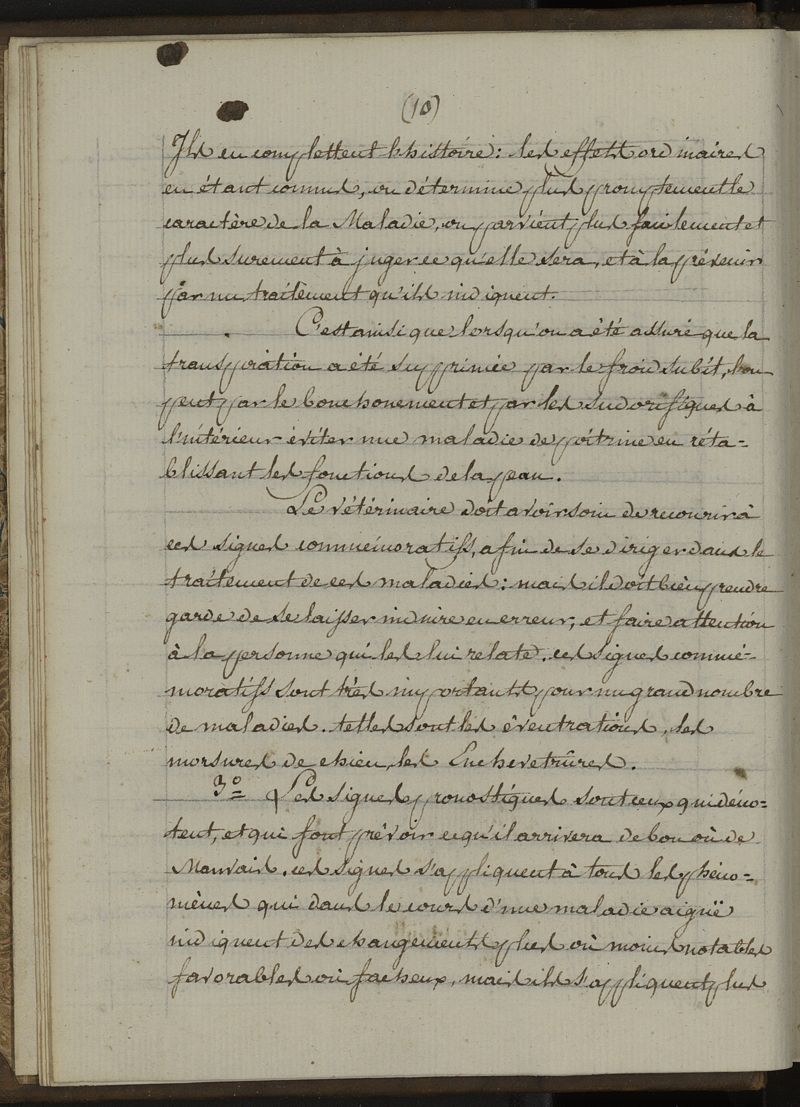 (10)
Ils en complettent l'histoire: les effets ordinaires
en étant connus, on détermine plus promptement le
caractère de la Maladie, on parvient plus facilement et
plus surement à juger ce qu'elle sera, et à la prévenir
par un traitement qu'ils indiquent.
C'est ainsi que lorsqu'on a été assuré que la
transpiration a été supprimée par le froid subit, l'on
peut par le bouchonement et par les sudorifiques à
l'intérieur éviter une maladie de poitrine en réta=
blissant les fonctions de la peau.
Le vétérinaire doit avoir soin de recourir à
ces signes commémoratifs, afin de se diriger dans le
traitement de ces maladies: mais il doit bien prendre
garde de se laisser induire en erreur, et faire attention
à la personne qui les lui relate. ces signes commé=
moratifs sont très importants pour un grand nombre
de maladies. telles sont les éventrations, les
morsures de chien, les Enchevetrûres.
3º Les signes pronostiques sont ceux qui déno=
tent, et qui font prévoir ce qu'il arrivera de bon où de
Mauvais. ces signes s'appliquent à tous les phéno=
mènes qui dans le cours d'une maladie aiguë
indiquent des changements plus où moins notables
favorables où facheux, mais ils s'appliquent plus